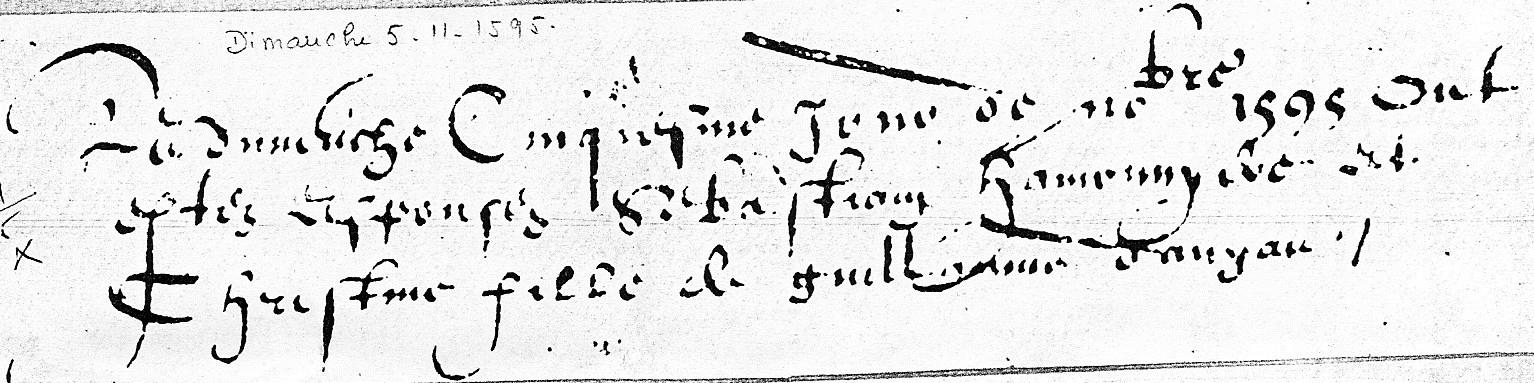 Dimanche 5.11.1595.
Le dimenche Cinquiesme Jour de nobre 1595 Ont
estes espouses Sebastian et
Christine fille de guillaume